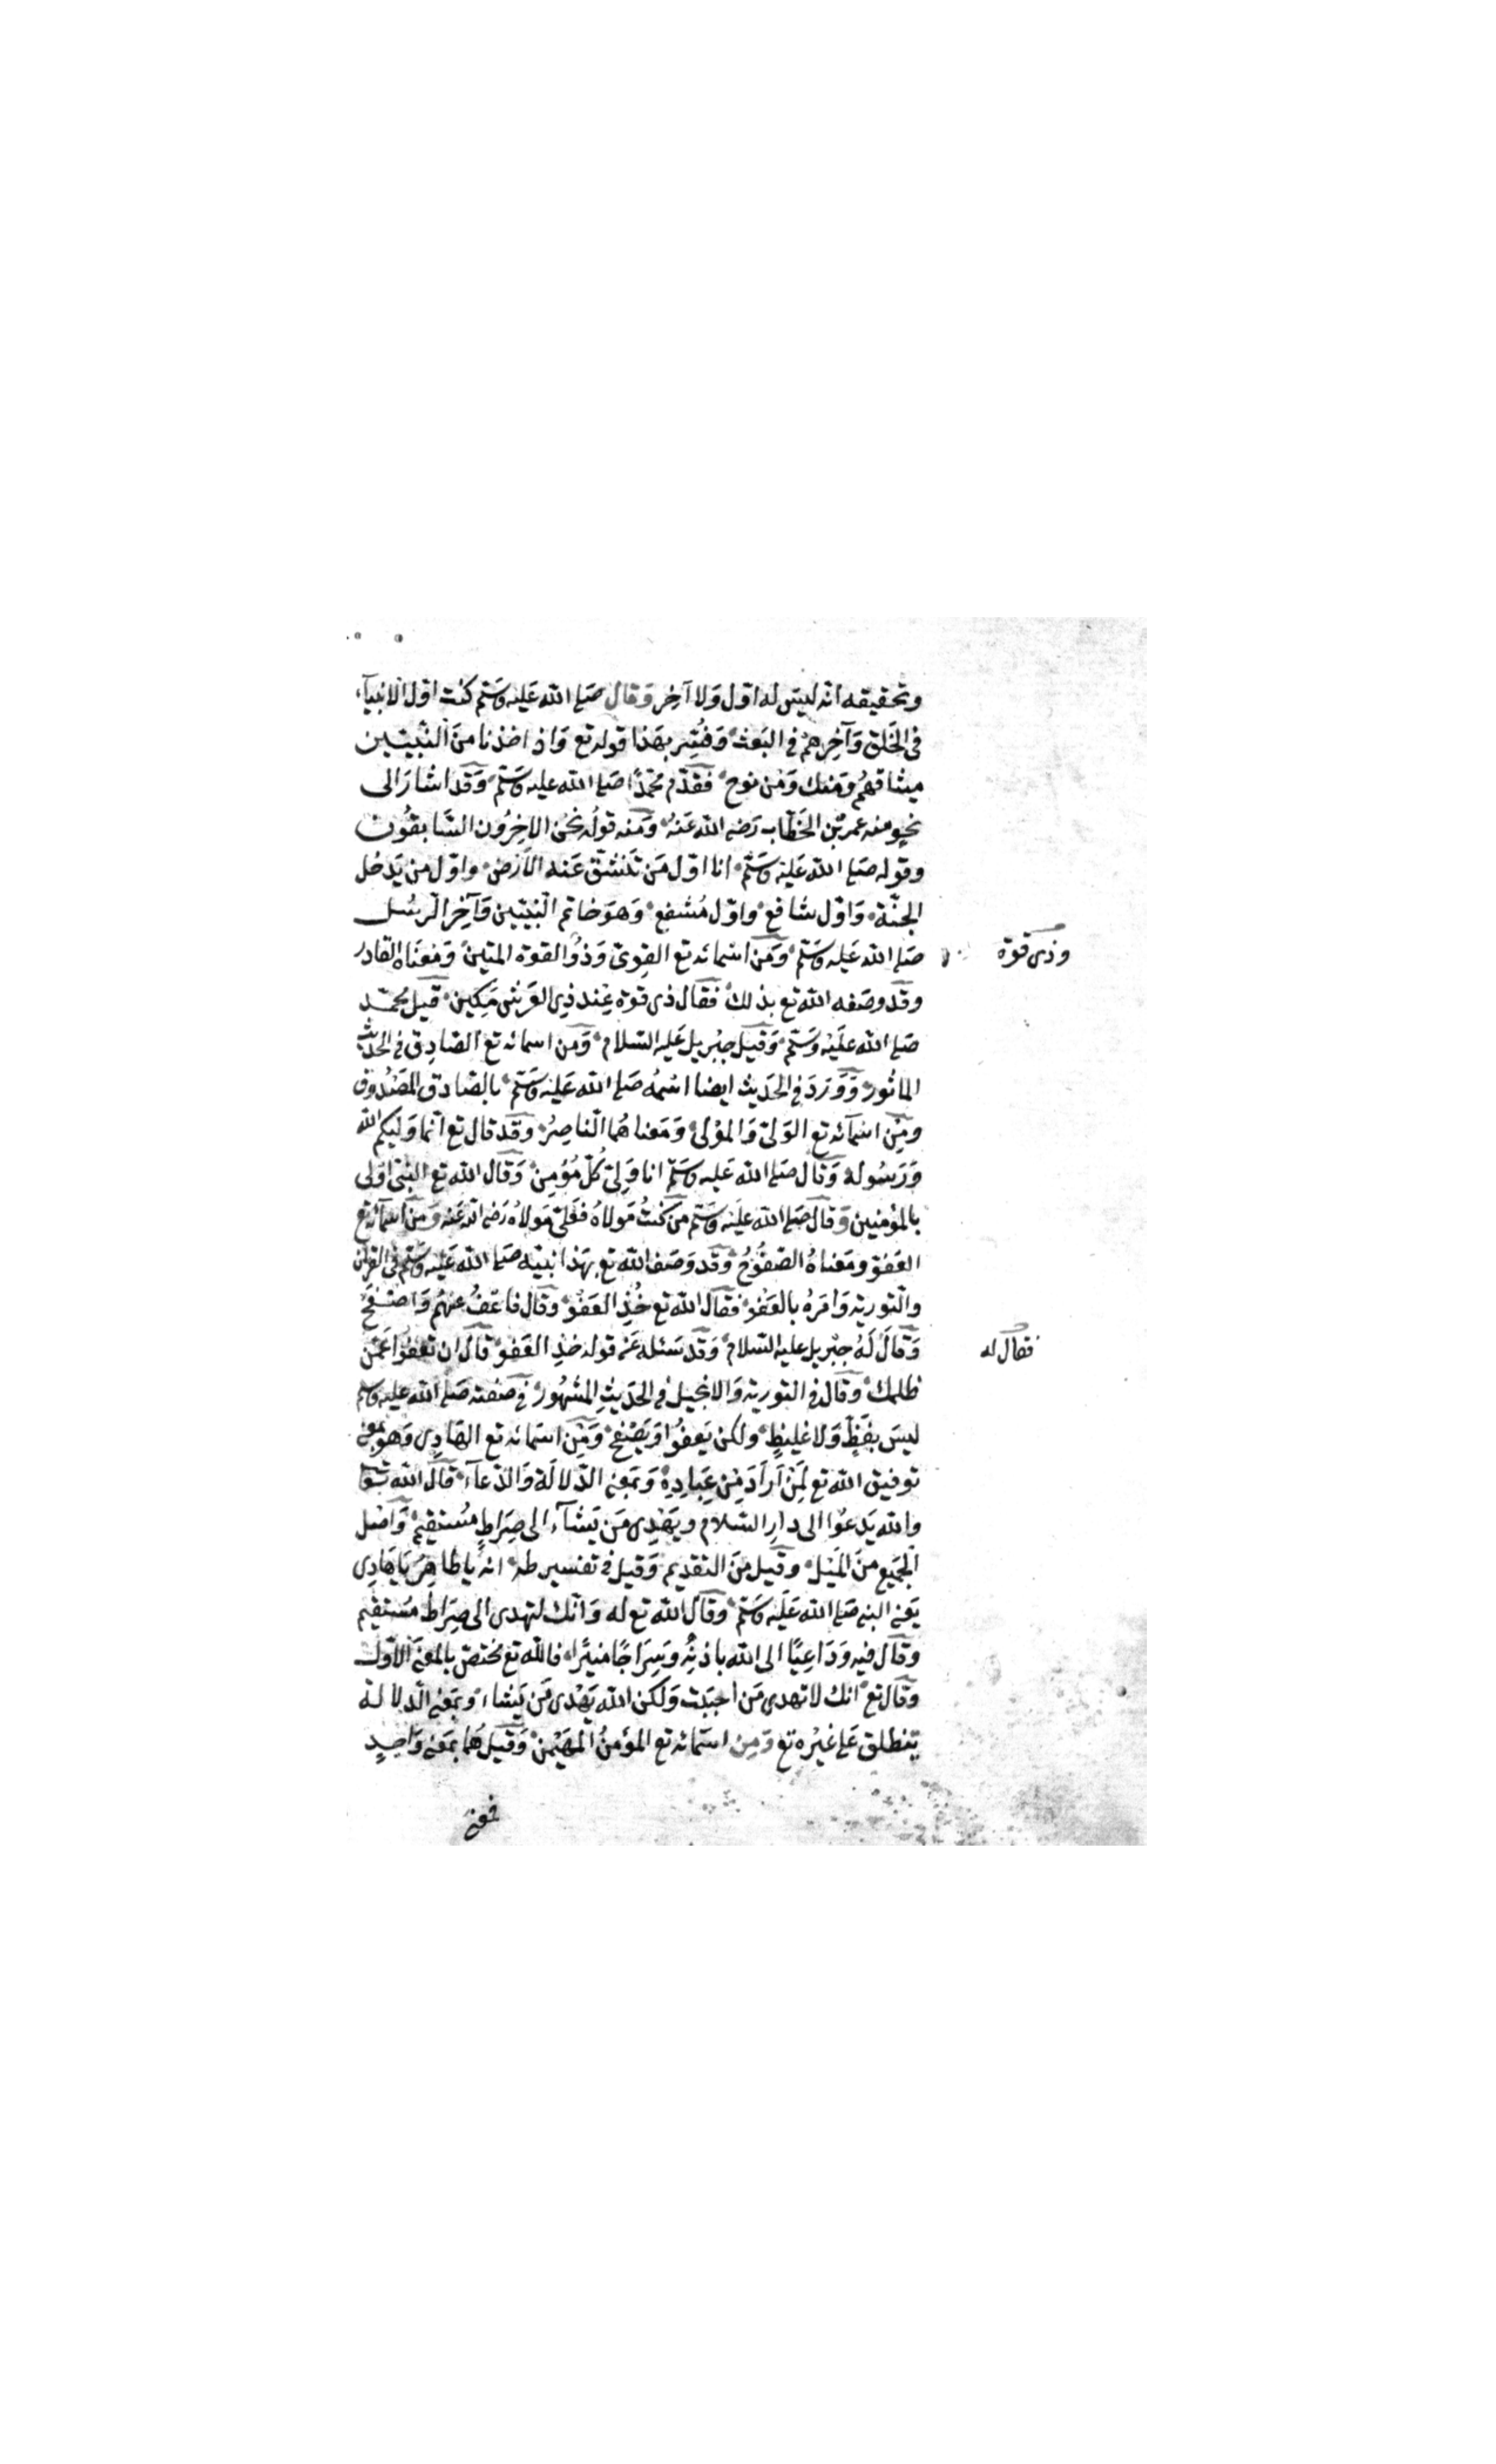 وتحقيقه انه ليس له اول ولا آخِر وَقال صَلى الله عَليه وسَلم كنت اول الانبيآء
في الخَلق وَآخِرهُم في البَعث وَفُسِّر بهَذا قوله تع وَاذ اخذنا منَ النبيّين
ميثاقهُم وَمنك وَمن نوح فقدّم محمّدًا صَلى الله عليه وسَلم وَقد اشارَ الى
نحوٍ منه عمر بن الخَطّاب رَضي الله عَنهُ وَمنه قولُه نحَن الاخِرُون السَّابقُون
وقوله صَلى الله عَليه وسَلم انا اوّل مَن تَنشقّ عَنه الأرض واوّل من يَدخل
الجنّة وَاوّل شافع واوّل مُشفع وَهوَ خاتم النّبيّين وَآخِر الرّسُل
صَلى الله عَليه وسَلم وَمَن اسمائه تع القوِىّ وَذُو القوة المتين وَمَعنَاه القادر
وذى قوة
وقَد وصَفه الله تع بذلك فقال ذى قوة عِند ذِي العَرش مَكِين قيل محمّد
صَلى الله عَلَيْه وَسَلم وَقيل جبْريل عَليه السّلام وَمن اسمائه تع الصَّادِق في الحَديث
الماثُور وَوَرَدَ في الحَديث ايضا اسْمُه صَلى الله عَليه وسَلم بالصَّادق المَصْدُوق
ومِن اسمآئه تع الوَلىّ وَالموْلى وَمَعناهُما النّاصِرُ وقد قال تع انّما وَليكم الله
وَرَسُوله وَقال صَلى الله عَليه وسَلم انا وَلِىّ كُلّ مُؤمِن وَقال الله تع النّبىّ اوْلى
بالمؤمنين وَقال صَلى الله عَليه وسَلم مَن كنتُ مَولاهُ فَعَلىّ مَولاهُ رَضي الله عَنه وَمِن اسمآئه تع
العَفوّ ومَعناهُ الصَّفُوحُ وقد وَصَف الله تع بهَذا نبيّه صَلى الله عَليه وسَلم في القرآن
والتّورية وَامَرهُ بالعَفْو فقال الله تع خُذِ العَفْو وَقال فاعَفُ عنهُم وَاصفَح
وَقال لَهُ جبْريل عليه السّلام وَقد سَئله عَن قوله خذِ العَفو قال ان تعفُوا عَمّن
فقال له
ظلمك وَقال في التورية وَالانجيل في الحَديثِ المشهُور في صَفته صَلى الله عليه وسلم
ليسَ بفَظّ وَلا غليظٍ ولكن يَعفُوا وَيَصْفح وَمِن اسمائه تع الهَادِى وَهو بمعنى
توفيق الله تع لِمَن اَرَادَ مِن عِبادِهِ وَبمَعنى الدّلالَة وَالدّعآء قال الله تع
والله يَدعُوا الى دارِ السَّلام ويَهْدِى مَن يَشآء الى صِرَاطٍ مُستقيم وَاصْل
الجَميع منَ المَيْل وقيل منَ التقديم وَقيل في تفسير طه انه يا طاهِرُ يَا هَادِى
يَعنى النبى صَلى الله عَليه وسَلم وَقال الله تع له وَانّك لتهدى الى صِرَاط مُستقيم
وَقال فيه وَدَاعيًا الى الله باذنِه وَسِرَاجًا منيرًا فالله تع مختصّ بالمعنى الأوّل
وقال تع انك لا تهدى مَن احبَبت وَلكن الله يَهْدى مَن يَشاء وَبمَعنى الدّلالة
يَنطلق عَلى غيْره تع وَمِن اسمَائه تع المؤمنُ المهَيْمنُ وَقيل هُما بمَعنى وَاحِدٍ
فمعنى